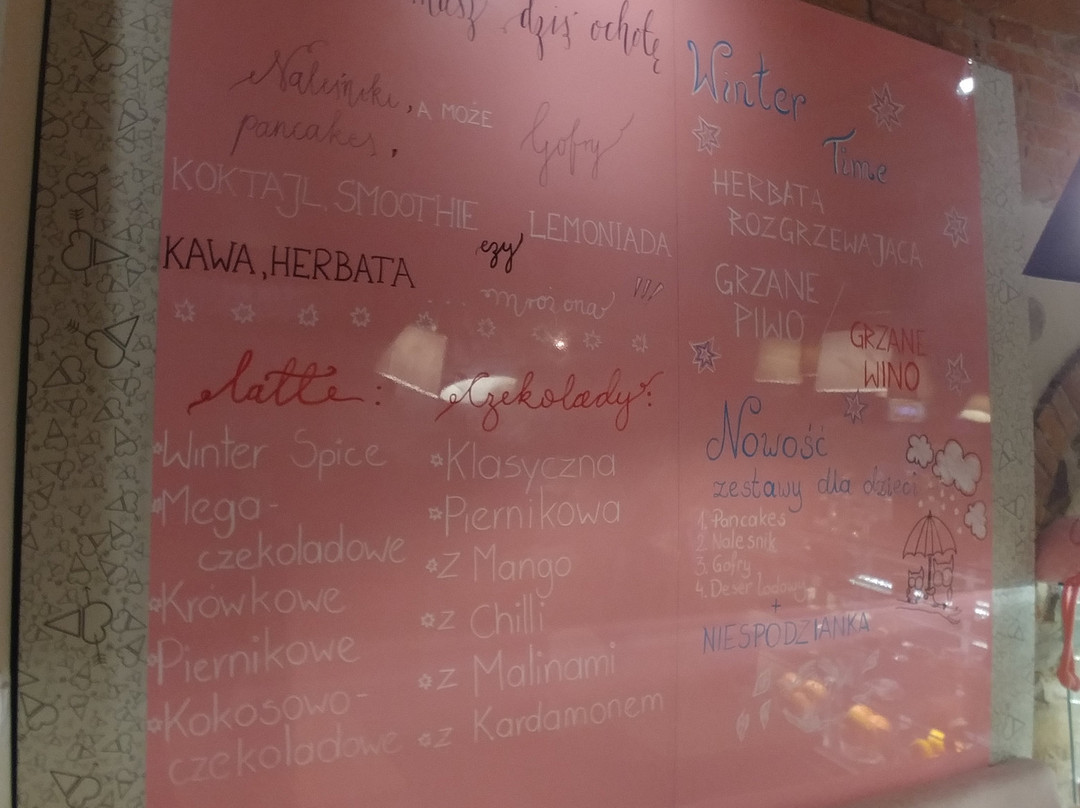 masz dziś ochotę
Naleśniki, A MOŻE
pancakes, Gofry
KOKTAJL, SMOOTHIE LEMONIADA
KAWA, HERBATA czy
mrożona !!!
latte: Czekolady:
*Winter Spice
*Mega-
czekoladowe
*Krówkowe
*Piernikowe
*Kokosowo-
czekoladowe
*Klasyczna
*Piernikowa
*z Mango
*z Chilli
*z Malinami
*z Kardamonem
Winter
Time
HERBATA
ROZGRZEWAJĄCA
GRZANE
PIWO
GRZANE
WINO
Nowość
zestawy dla dzieci
1. Pancakes
2. Naleśnik
3. Gofry
4. Deser lodowy
+
NIESPODZIANKA